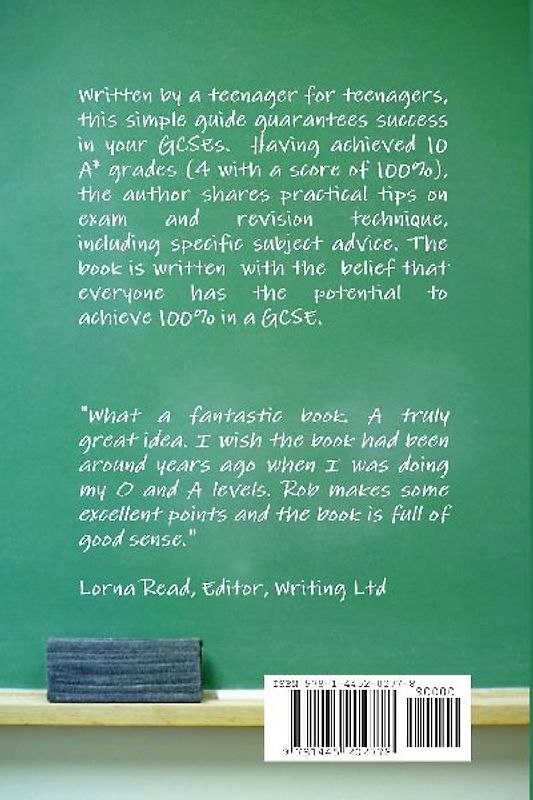 Written by a teenager for teenagers,
this simple guide guarantees success
in your GCSEs. Having achieved 10
A* grades (4 with a score of 100%),
the author shares practical tips on
exam and revision technique,
including specific subject advice. The
book is written with the belief that
everyone has the potential to
achieve 100% in a GCSE.
"What a fantastic book. A truly
great idea. I wish the book had been
around years ago when I was doing
my O and A levels. Rob makes some
excellent points and the book is full of
good sense."
Lorna Read, Editor, Writing Ltd
ISBN 978-1-4452-0277-8
90000
9 781445 202778